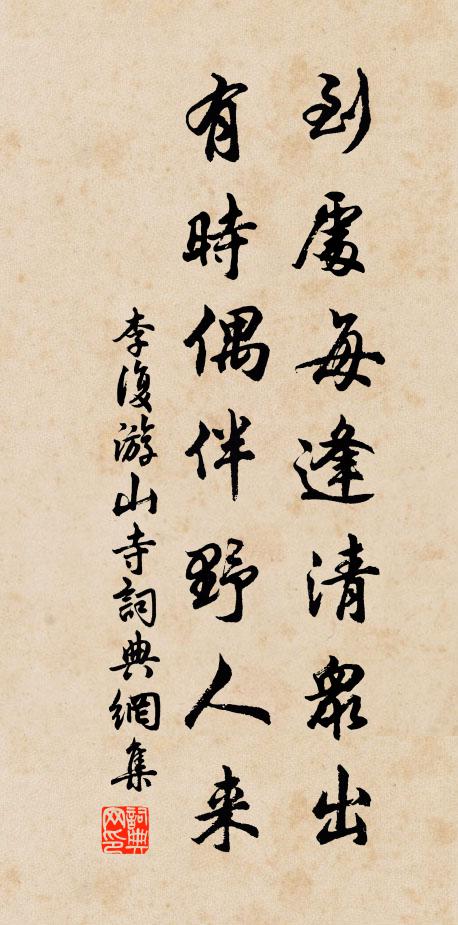 到處每逢清衆出
有時偶伴野人来
李復游山寺詞典網集
詞典网印